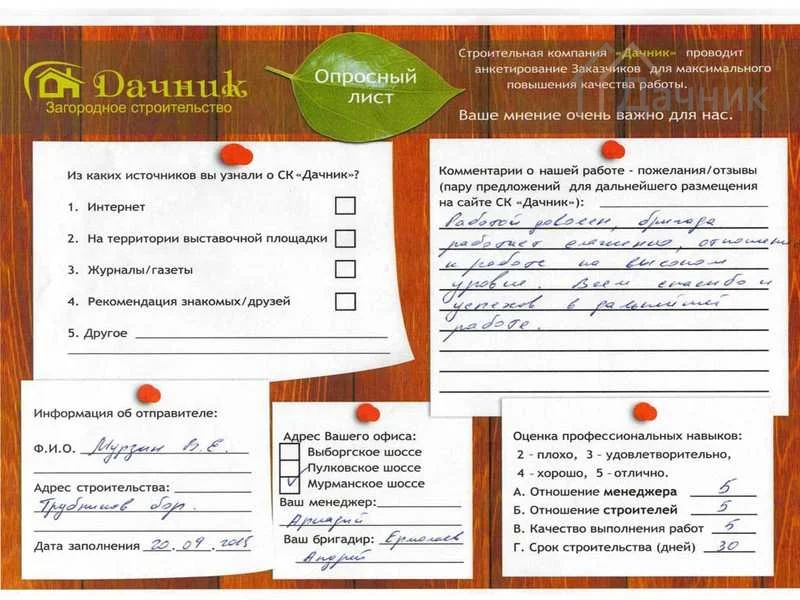 Дачник
Загородное строительство
Опросный
лист
Строительная компания «Дачник» проводит
анкетирование Заказчиков для максимального
повышения качества работы.
Дачник
Ваше мнение очень важно для нас.
Из каких источников вы узнали о СК «Дачник»?
1. Интернет
2. На территории выставочной площадки
3. Журналы/газеты
4. Рекомендация знакомых/друзей
5. Другое
Комментарии о нашей работе - пожелания/отзывы
(пару предложений для дальнейшего размещения
на сайте СК «Дачник»):
Работой доволен, бригада
работает слаженно, отношение
к работе на высоком
уровне. Всем спасибо и
успехов в дальнейшей
работе.
Информация об отправителе:
Ф.И.О. Мурзин В.Е.
Адрес строительства:
Трубников бор.
Дата заполнения 20.09.2015
Адрес Вашего офиса:
Выборгское шоссе
Пулковское шоссе
Мурманское шоссе
Ваш менеджер:
Аркадий
Ваш бригадир: Ермолаев
Андрей
Оценка профессиональных навыков:
2 - плохо, 3 - удовлетворительно,
4 - хорошо, 5 - отлично.
А. Отношение менеджера 5
Б. Отношение строителей 5
В. Качество выполнения работ 5
Г. Срок строительства (дней) 30